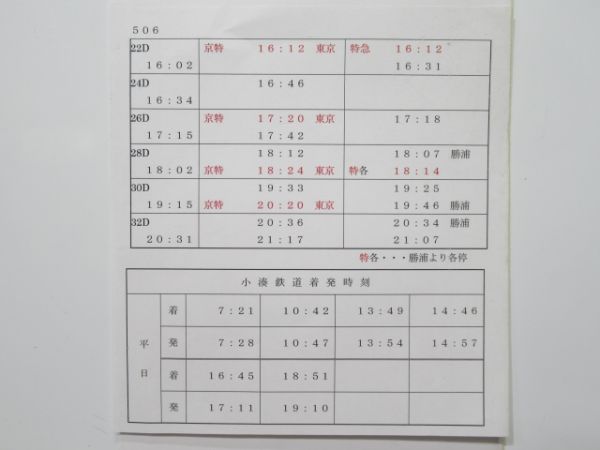 506
22D 京特 16:12 東京 特急 16:12
16:02 16:31
24D 16:46
16:34
26D 京特 17:20 東京 17:18
17:15 17:42
28D 18:12 18:07 勝浦
18:02 京特 18:24 東京 特各 18:14
30D 19:33 19:25
19:15 京特 20:20 東京 19:46 勝浦
32D 20:36 20:34 勝浦
20:31 21:17 21:07
特各・・・勝浦より各停
小湊鉄道着発時刻
平日
着 7:21 10:42 13:49 14:46
発 7:28 10:47 13:54 14:57
着 16:45 18:51
発 17:11 19:10